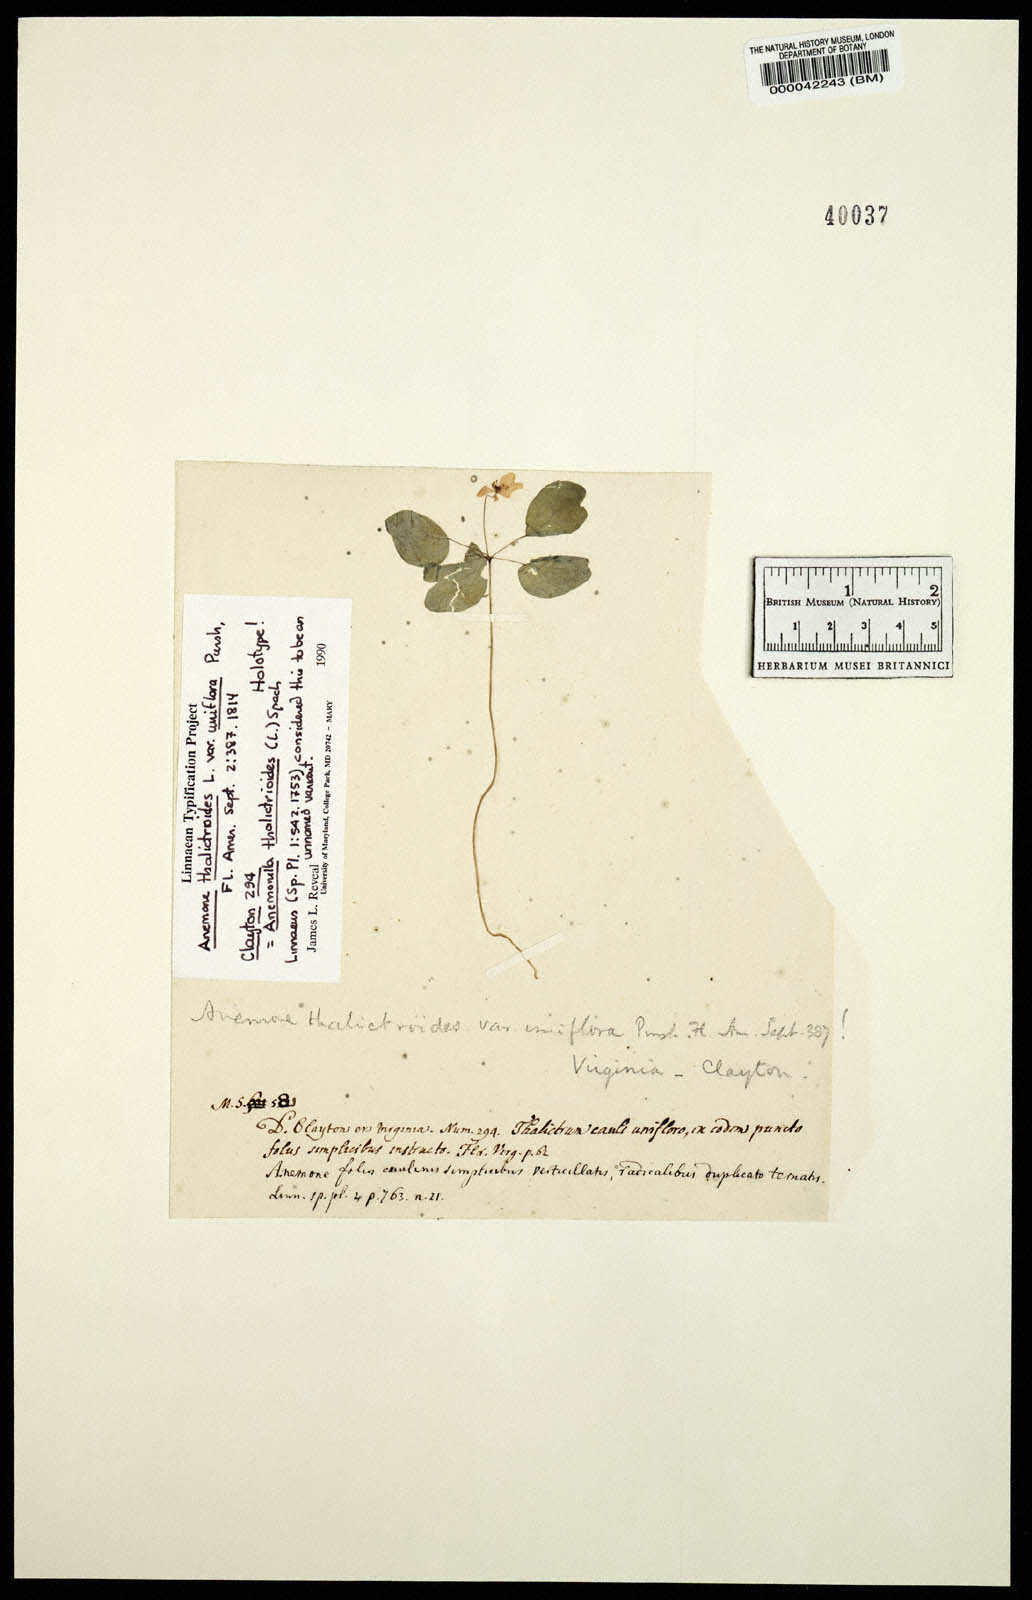 THE NATURAL HISTORY MUSEUM, LONDON
DEPARTMENT OF BOTANY
000042243 (BM)
40037
1 2
BRITISH MUSEUM (NATURAL HISTORY)
1 2 3 4 5
HERBARIUM MUSEI BRITANNICI
Linnaean Typification Project
Anemone thalictrioides L. var. uniflora Pursh,
Fl. Amer. Sept. 2:387. 1814
Clayton 294 Holotype!
= Anemonella thalictrioides (L.) Spach
Linnaeus (Sp. Pl. 1:542. 1753), considered this to be an
unnamed variant.
James L. Reveal 1990
University of Maryland, College Park, MD 20742 – MARY
Anemone thalictroides var uniflora Pursh. Fl. Am. Sept. 387!
Virginia - Clayton.
M. S. 58
D. Clayton ex Virginia. Num. 294. Thalictrum cauli unifloro, ex eodem puncto
foliis simplicibus instructo. Flr. Virg. p. 62
Anemone foliis caulinis simplicibus verticillatis, radicalibus duplicato ternatis.
Linn. sp. pl. 4 p. 763. n. 21.